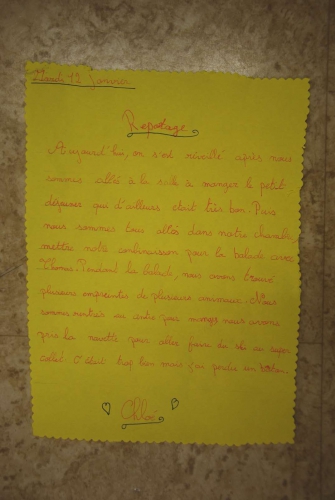 Mardi 12 Janvier
Reportage
Aujourd'hui, on s'est réveillé après nous
sommes allé à la salle à manger le petit
déjeuner qui d'ailleurs était très bon. Puis
nous sommes tous allés dans notre chambre
mettre notre combinaison pour la balade avec
Thomas. Pendant la balade, nous avons trouvé
plusieurs empreintes de plusieurs animaux. Nous
sommes rentrés au centre pour manger nous avons
pris la navette pour aller faire du ski au super
collet c'était trop bien mais j'ai perdu un bâton.
Chloé